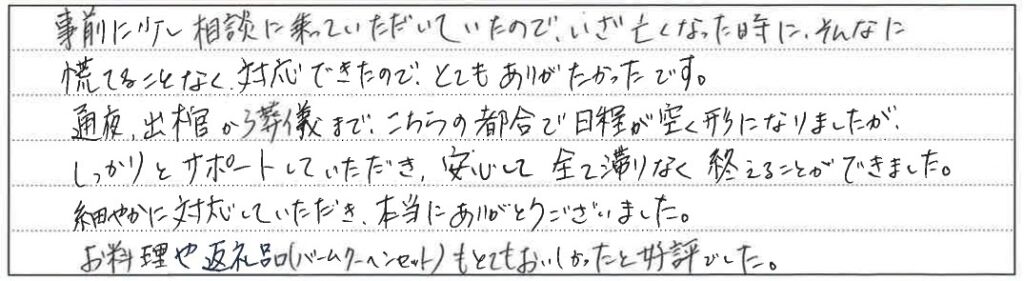 事前に少し相談に乗っていただいていたので、いざ亡くなった時に、そんなに
慌てることなく、対応できたので、とてもありがたかったです。
通夜、出棺から葬儀まで、こちらの都合で日程が空く形になりましたが、
しっかりとサポートしていただき、安心して全て滞りなく終えることができました。
細やかに対応していただき、本当にありがとうございました。
お料理や返礼品(バームクーヘンセット)もとてもおいしかったと好評でした。